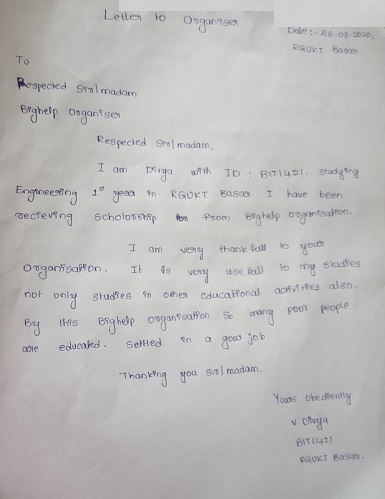 Letter to Organiser
Date:- 26-08-2020,
RGUKT Basar.
To
Respected Sir/madam
Bighelp Organiser
Respected Sir/madam,
I am Divya with ID : B171421. studying
Engineering 1st year in RGUKT Basar. I have been
recieving scholorship from Bighelp organisation.
I am very thank full to your
Organisation. It is very use full to my studies
not only studies in other educational activities also.
By this Bighelp organisation so many poor people
are educated. settled in a job.
Thanking you sir/madam.
Yours obediently
V. Divya
B171421
RGUKT Basar.